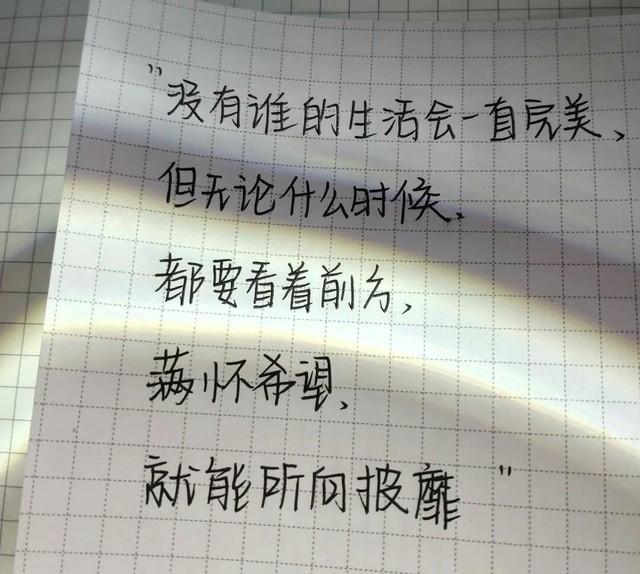 "没有谁的生活会一直完美、
但无论什么时候.
都要看着前方,
满怀希望、
就能所向披靡"